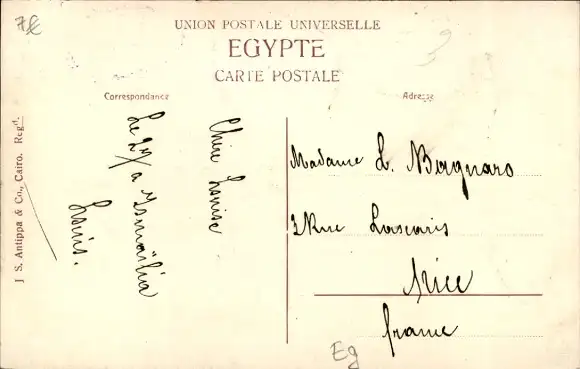 7€
UNION POSTALE UNIVERSELLE
EGYPTE
CARTE POSTALE
Correspondance
Adresse
Chère Louise
Le 27/ a Ismaïlia
Louis.
Madame L. Bagnaro
3 Rue Lascaris
Nice
france
J. S. Antippa & Co., Cairo. Regd.
Eg